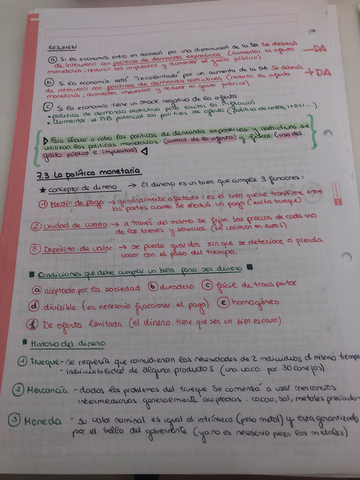 RESUMEN
ⓐ Si la economía entra en recesión por una disminución de la DA se deberá
de intervenir con políticas de demanda expansivas (aumentar la oferta
monetaria, reducir los impuestos y aumentar el gasto público) -DA
ⓑ Si la economía está "recalentada" por un aumento de la DA se debería
de intervenir con políticas de demanda restrictivas (reducir la oferta
monetaria, aumentar impuestos y reducir el gasto público) +DA
ⓒ Si la economía tiene un shock negativo de la oferta
• políticas de demanda restrictiva para evitar la inflación
• Aumentar el PIB potencial con políticas de oferta
▷ Para llevar a cabo las políticas de demanda expansivas y restrictivas se
utilizan las políticas monetarias (control de la oferta) y fiscal (uso del
gasto público e impuestos) ◁
7.3 La política monetaria
★ concepto de dinero → El dinero es un bien que cumple 3 funciones:
① Medio de pago → generalmente aceptado: es el bien que se transfiere entre
las partes cuando se efectúa un pago (evita trueque)
② Unidad de cuenta → a través del mismo se fijan los precios de cada uno
de los bienes y servicios (se valoran en esto)
③ Depósito de valor → se puede guardar, sin que se deteriore o pierda
valor con el paso del tiempo.
■ Condiciones que debe cumplir un bien para ser dinero
ⓐ aceptado por la sociedad ⓑ duradero ⓒ fácil de transportar
ⓓ divisible (es necesario fraccionar el pago) ⓔ homogéneo
ⓕ De oferta limitada (el dinero tiene que ser un bien escaso)
■ Historia del dinero
1 Trueque - se requería que coincidieran las necesidades de 2 individuos al mismo tiempo
- indivisibilidad de algunos productos (una vaca por 30 conejos)
2 Mercancía - dados los problemas del trueque se comenzó a usar mercancías
intermediarias generalmente aceptadas: cacao, sal, metales preciados
3 Moneda - su valor nominal es igual al intrínseco (peso metal) y esta garantizado
por el sello del gobernante (ya no es necesario pesar los metales)